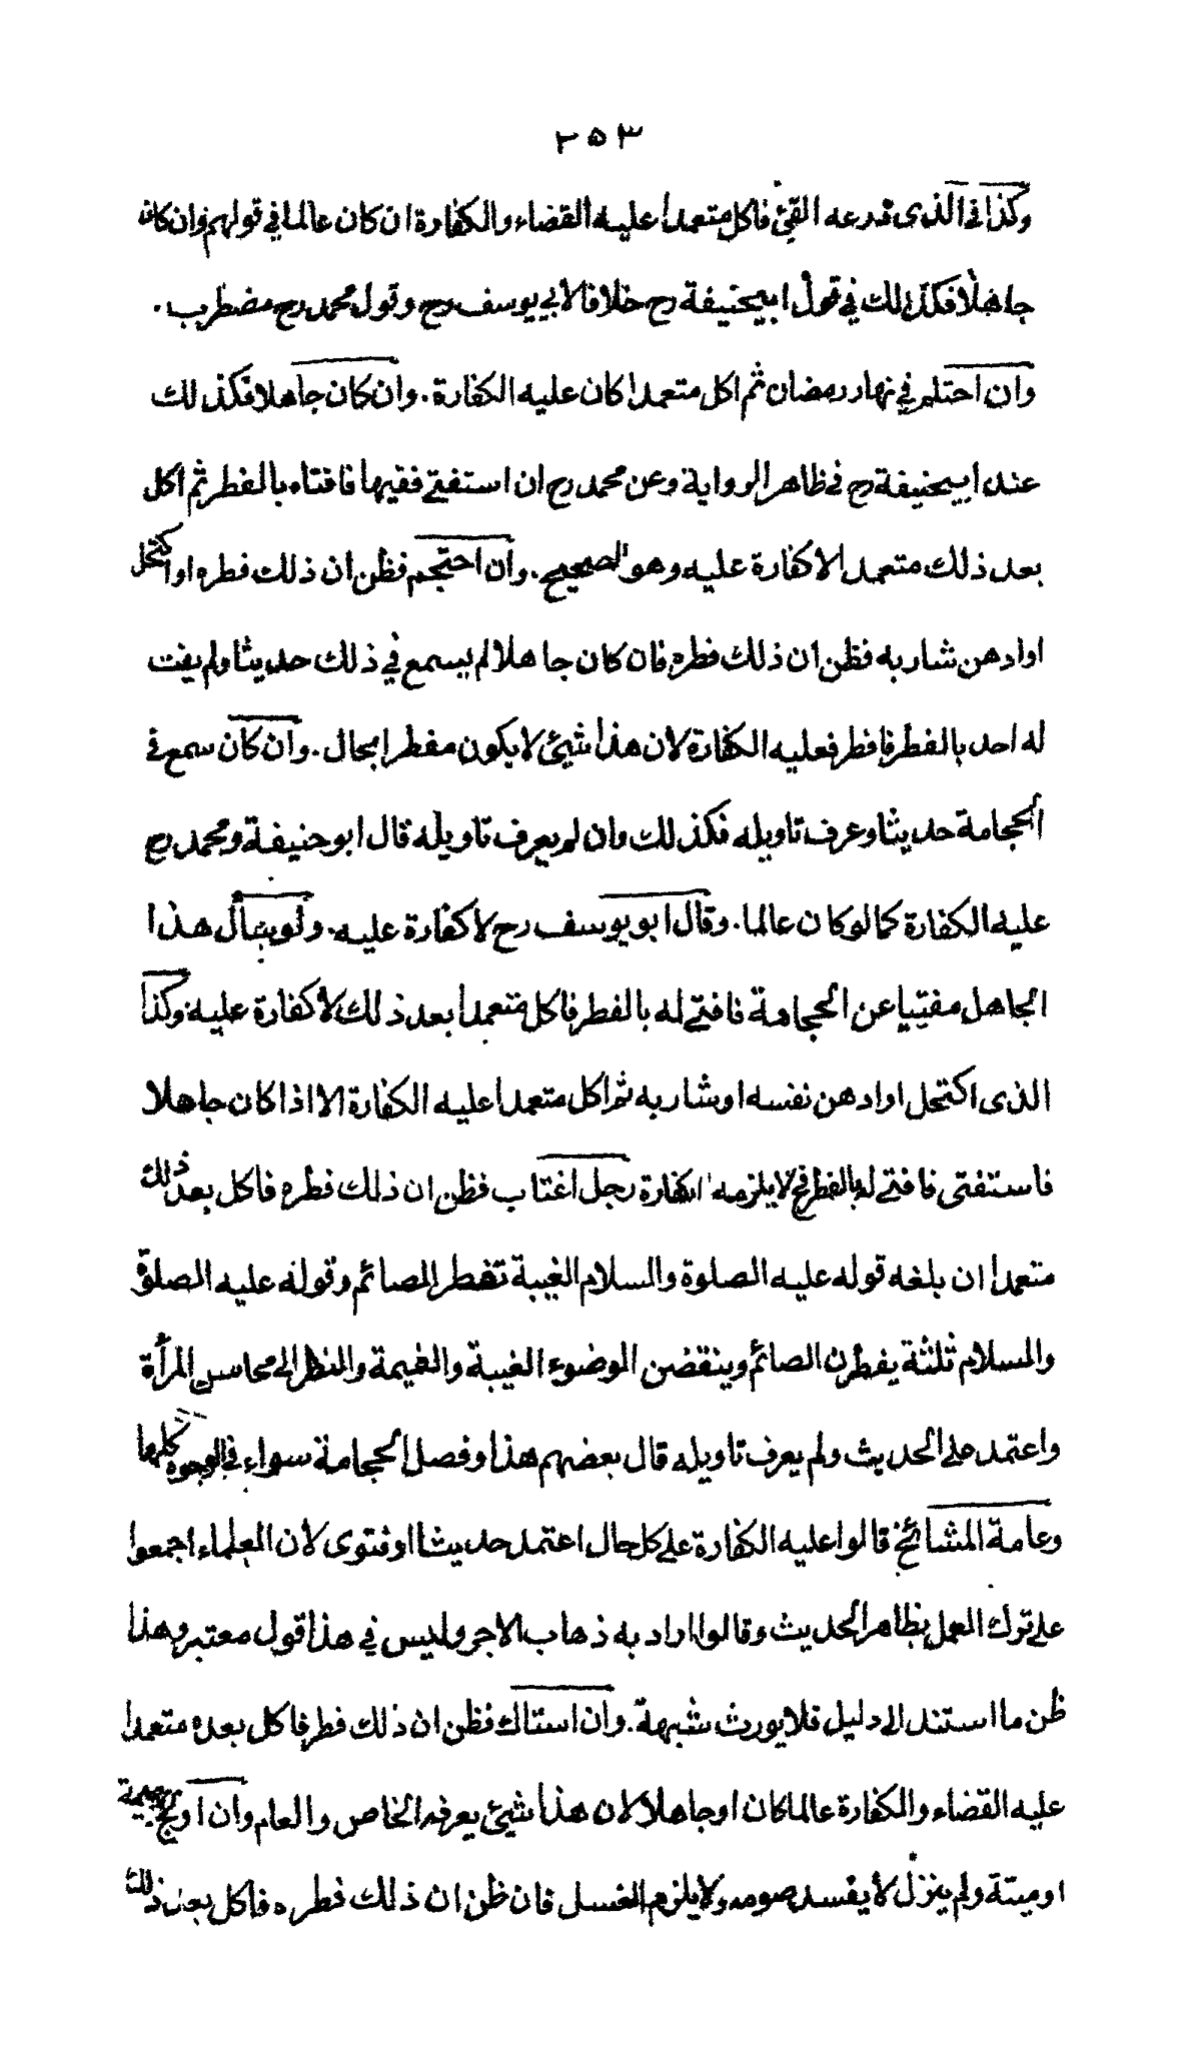 ٢٥٣
وكذا فى الذى ذرعه القئ فاكل متعمدا عليه القضاء والكفارة ان كان عالما فى قولهم وان كان
جاهلا فكذلك في قول ابيحنيفة رح خلافا لابي يوسف رح وقول محمد رح مضطرب .
وان احتلم في نهار رمضان ثم اكل متعمدا كان عليه الكفارة . وان كان جاهلا فكذلك
عند ابيحنيفة رح فى ظاهر الرواية وعن محمد رح ان استفتى فقيها فافتاه بالفطر ثم اكل
بعد ذلك متعمد الاكفارة عليه وهو الصحيح . وان احتجم فظن ان ذلك فطره او اكتحل
اوادهن شاربه فظن ان ذلك فطره فان كان جاهلا لم يسمع في ذلك حديثا ولم يفت
له احد بالفطر فافطر فعليه الكفارة لان هذا شيئ لا يكون مفطرا بحال . وان كان سمع فى
الحجامة حديثا وعرف تاويله فكذلك وان لم يعرف تاويله قال ابو حنيفة ومحمد رح
عليه الكفارة كما لو كان عالما . وقال ابو يوسف رح لا كفارة عليه . ولو سأل هذا
الجاهل مفتيا عن الحجامة فافتى له بالفطر فاكل متعمدا بعد ذلك لا كفارة عليه وكذا
الذى اكتحل اوادهن نفسه او شاربه ثم اكل متعمدا عليه الكفارة الا اذا كان جاهلا
فاستفتى فافتى له بالفطر فح لا يلزمه الكفارة رجل اغتاب فظن ان ذلك فطره فاكل بعد ذلك
متعمدا ان بلغه قوله عليه الصلوة والسلام الغيبة تفطر الصائم وقوله عليه الصلوة
والسلام ثلثة يفطرن الصائم وينقضن الوضوء الغيبة والنميمة والنظر الى محاسن المرأة
واعتمد على الحديث ولم يعرف تاويله قال بعضهم هذا وفصل الحجامة سواء فى الوجوه كلها
وعامة المشائخ قالوا عليه الكفارة على كل حال اعتمد حديثا او فتوى لان العلماء اجمعوا
على ترك العمل بظاهر الحديث وقالوا اراد به ذهاب الاجر وليس في هذا قول معتبر وهذا
ظن ما استند الى دليل فلا يورث شبهة . وان استاك فظن ان ذلك فطره فاكل بعده متعمدا
عليه القضاء والكفارة عالما كان او جاهلا لان هذا شيئ يعرفه الخاص والعام وان اولج بهيمة
او ميتة ولم ينزل لا يفسد صومه ولا يلزمه الغسل فان ظن ان ذلك فطره فاكل بعد ذلك